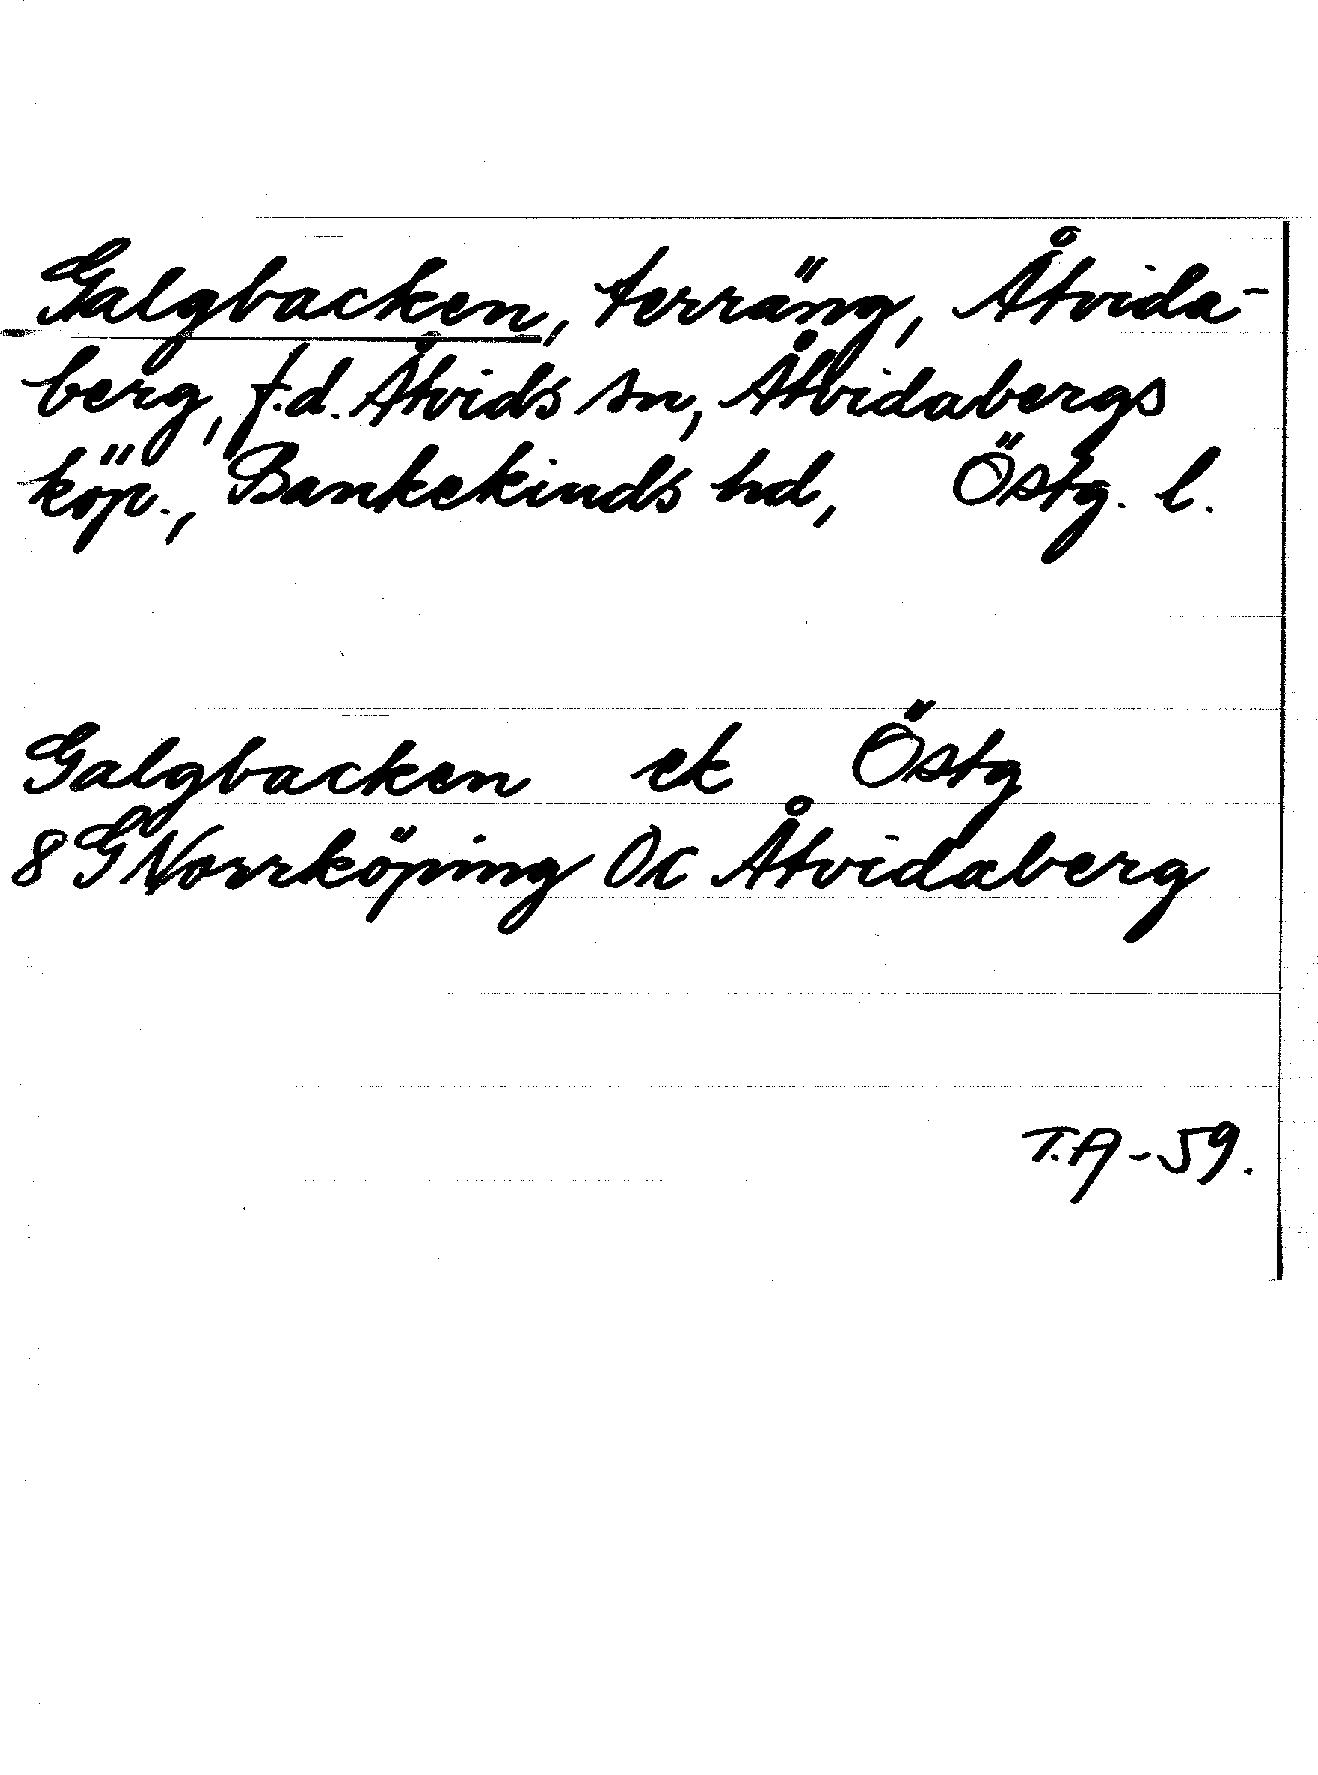 Galgbacken, terräng, Åtvida-
berg, f.d. Åtvids sn, Åtvidabergs
köp., Bankekinds hd, Östg. l.
Galgbacken ek Östg
8 G Norrköping Åtvidaberg
T.A-59.